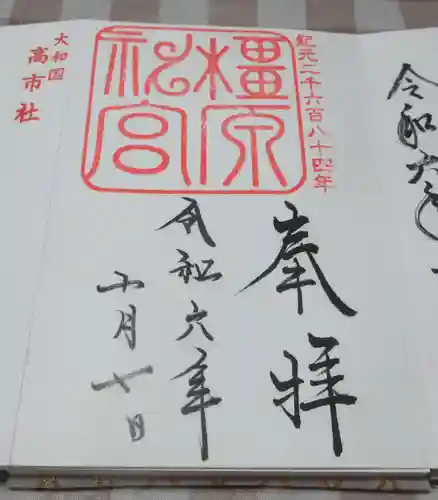 令和六年
紀元二千六百八十四年
橿原
神宮
大和国
高市社
奉拝
令和六年
十月七日